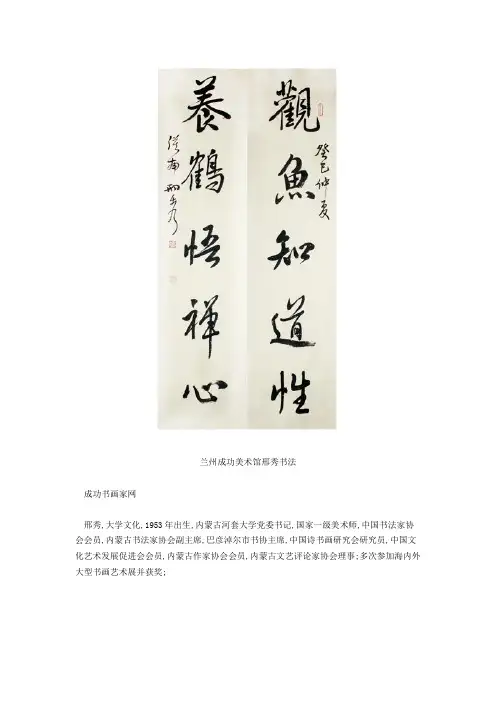 觀魚知道性
癸巳仲夏
養鶴悟禅心
邢秀
兰州成功美术馆邢秀书法
成功书画家网
邢秀,大学文化,1953年出生,内蒙古河套大学党委书记,国家一级美术师,中国书法家协
会会员,内蒙古书法家协会副主席,巴彦淖尔市书协主席,中国诗书画研究会研究员,中国文
化艺术发展促进会会员,内蒙古作家协会会员,内蒙古文艺评论家协会理事;多次参加海内外
大型书画艺术展并获奖;